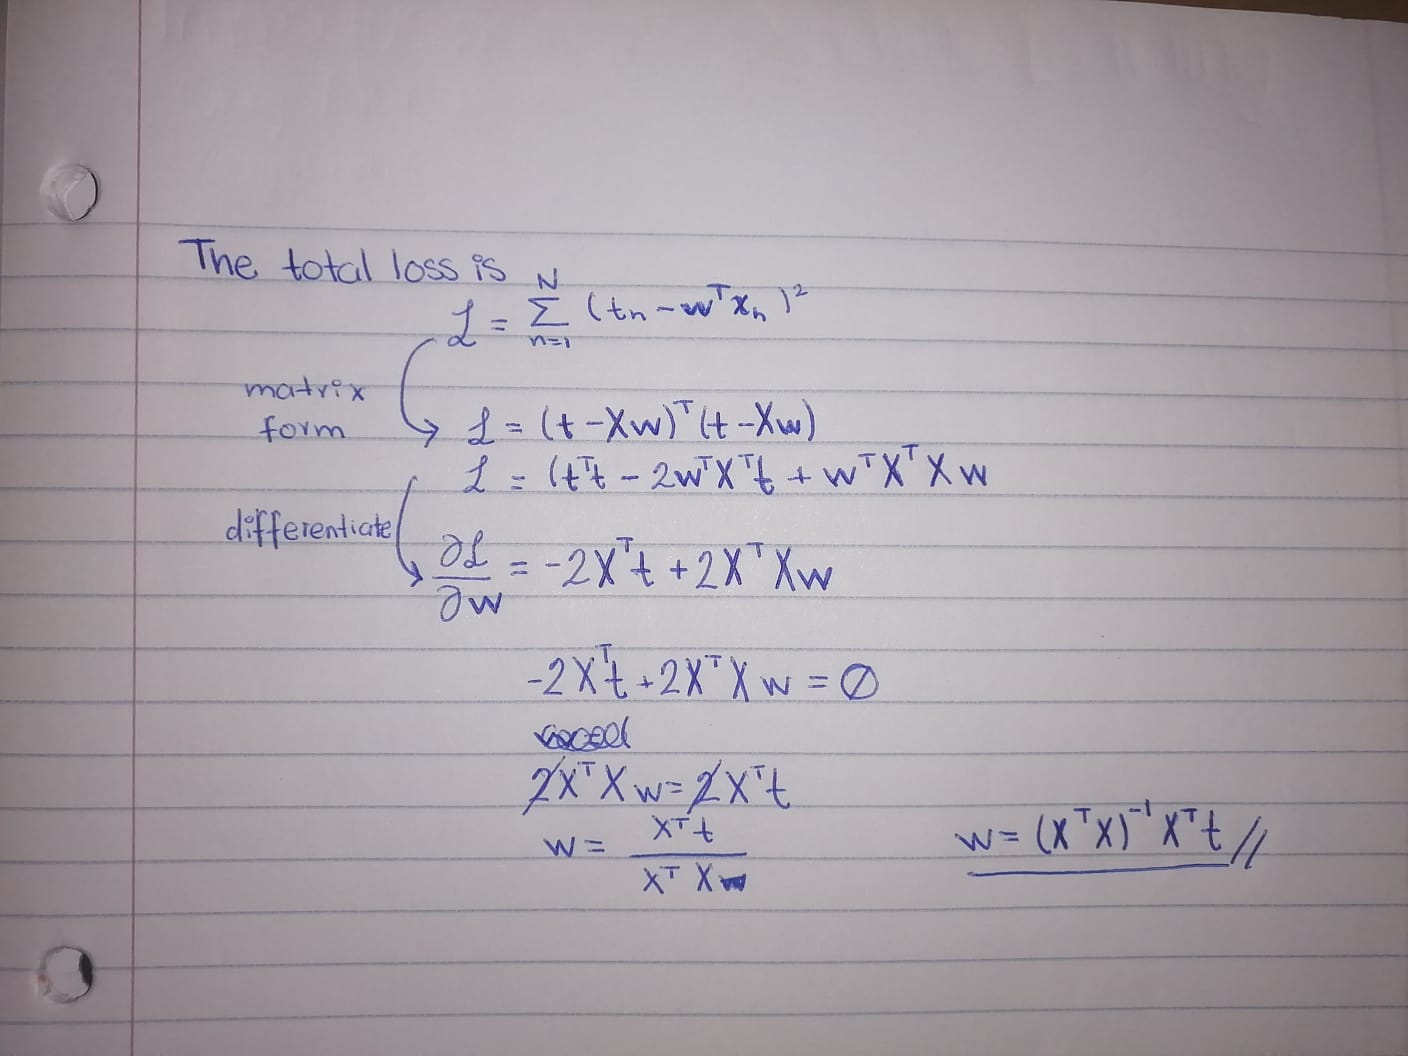 The total loss is
ℒ = Σ_{n=1}^{N} (tn - wᵀxn)²
matrix
form
ℒ = (t - Xw)ᵀ(t - Xw)
ℒ = (tᵀt - 2wᵀXᵀt + wᵀXᵀXw
differentiate
∂ℒ/∂w = -2Xᵀt + 2XᵀXw
-2Xᵀt + 2XᵀXw = 0
2XᵀXw = 2Xᵀt
w = Xᵀt / XᵀX
w = (XᵀX)⁻¹Xᵀt //